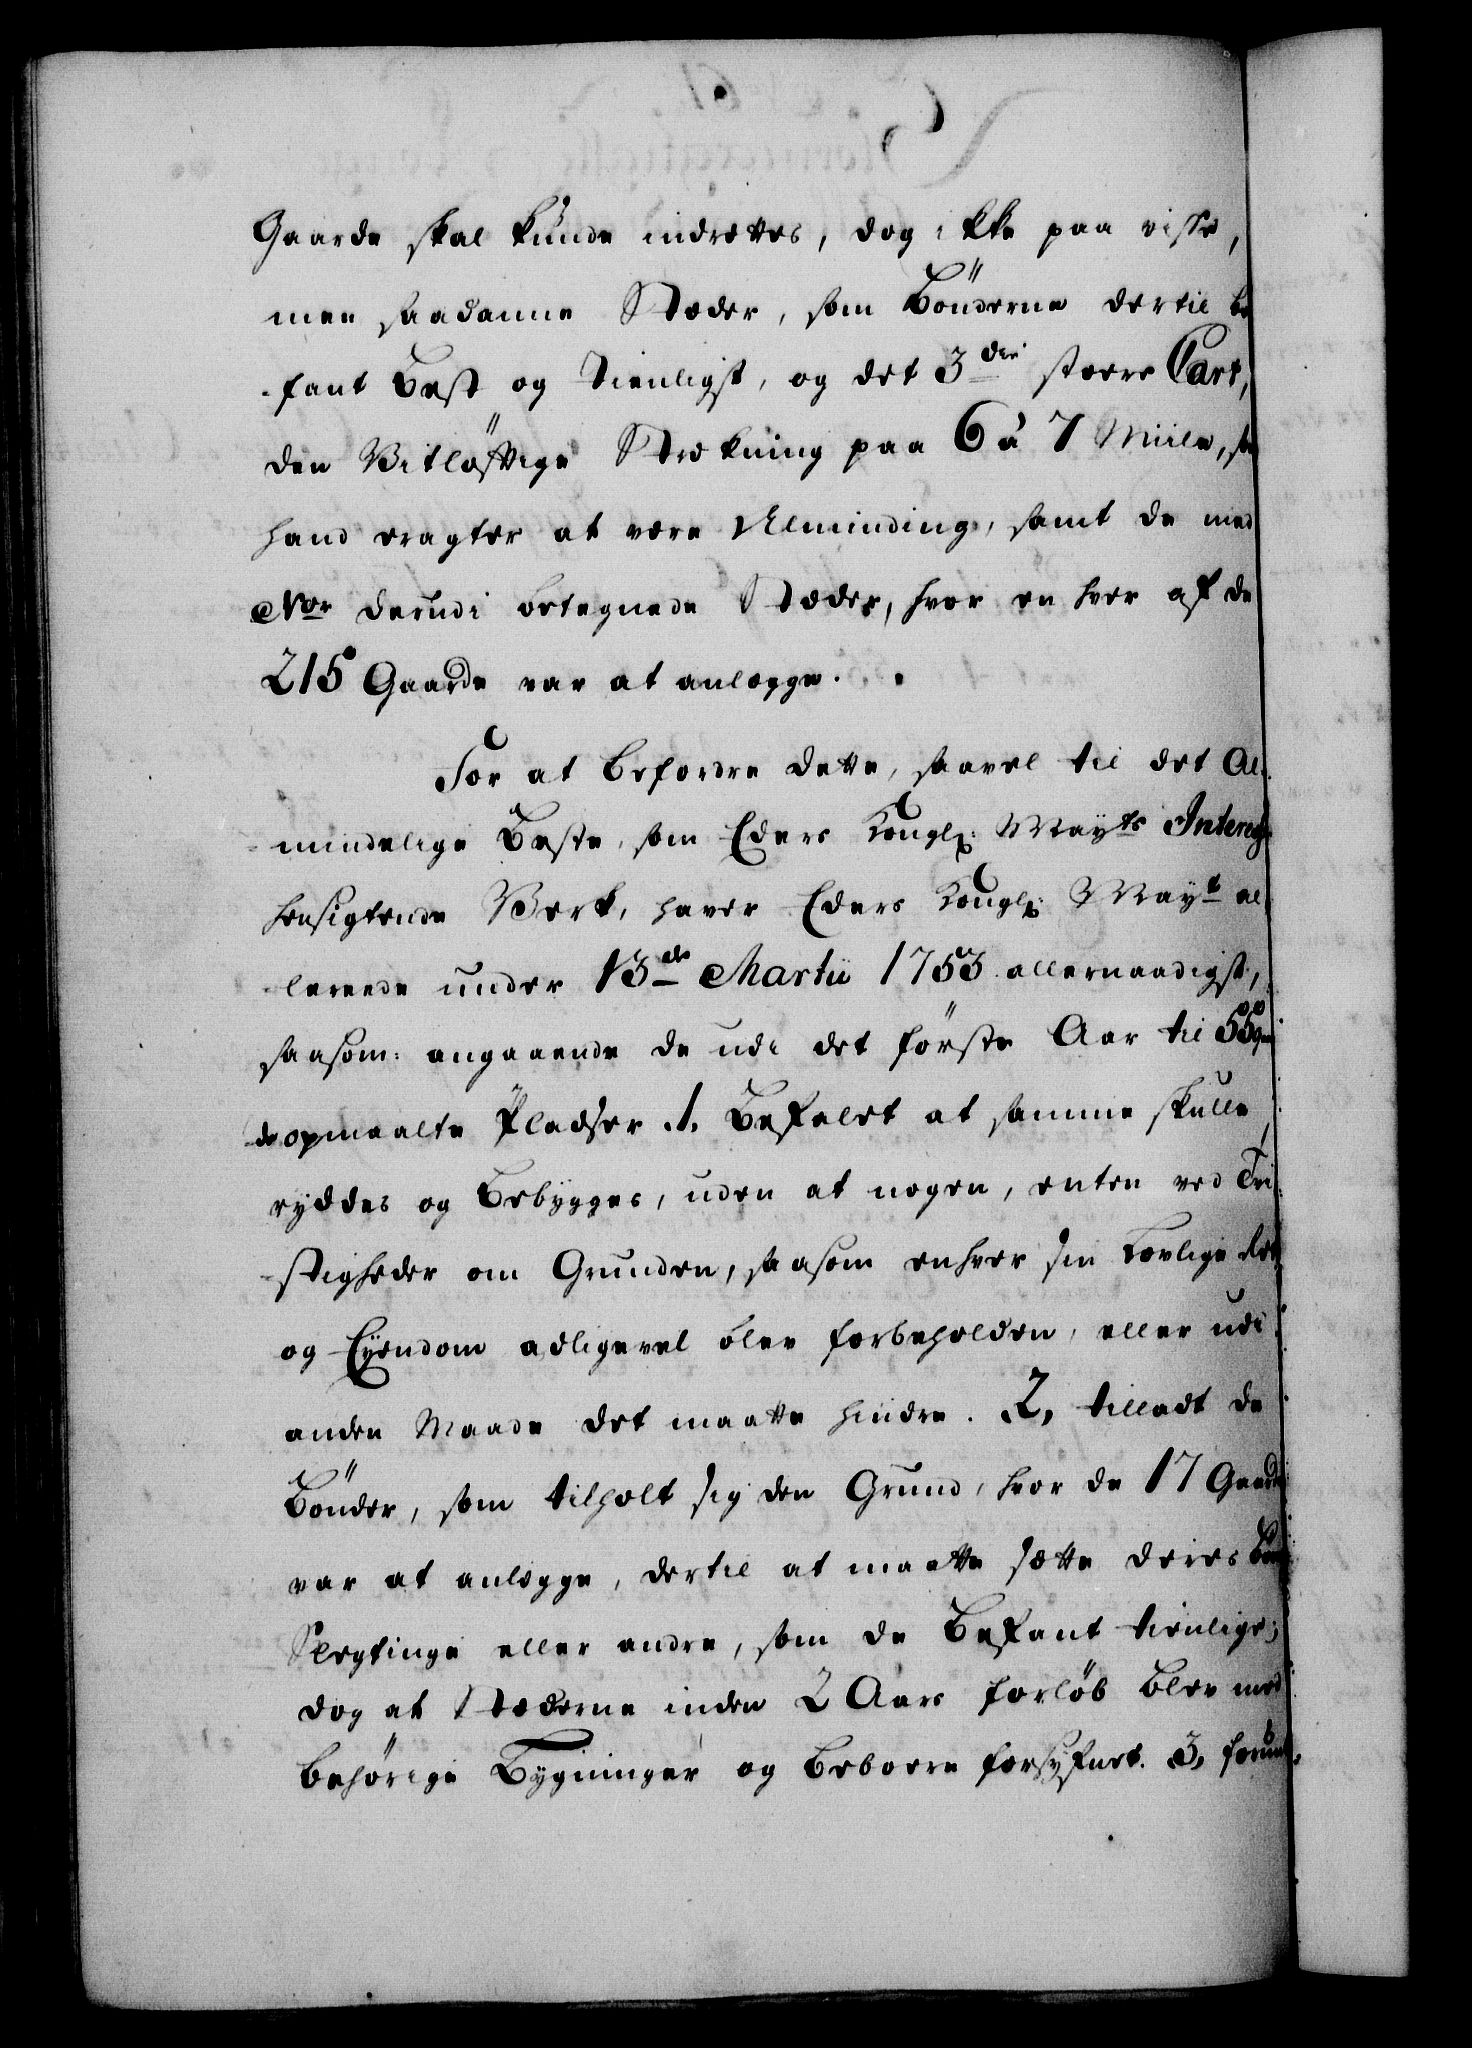 Gaarde skal kunde indrettes, dog ikke paa visse,
men saadanne Stæder, som Bönderne dertil be
fant Best og tienligst, og det 3die store Cart,
den Vitløftige Strekning paa 6 à 7 Miile, som
hand eragter at være Alminding, samt de med
Nor derudi betegnede Stæder, hvor en hver af de
215 Gaarde var at anlægge.
For at befordre dette, saavel til det Al
mindelige Beste, som Eders Kongl: Mayts Interesse
hensigtende Verk, haver Eders Kongl: Mayt al
lereede under 13de Martii 1753 allernaadigst,
saasom: angaaende de udi det förste Aar til
de opmaalte Pladser 1. Befalet at samme skulle
ryddes og Bebygges, uden at nogen, enten ved Tvi
stigheder om Grunden, saasom enhver sin Lovlige Ret
og Eyendom adligevel blev forbeholden, eller udi
anden Maade det maatte hindre. 2, tilladt de
Bönder, som tilholt sig den Grund, hvor de 17 Gaarde
var at anlægge, dertil at maatte sætte deres Børn
Slegtinge eller andre, som de Befant tienlige;
dog at Stæderne inden 2 Aars forlöb blev med
behörige Bygninger og beboere forsyfnet. 3,